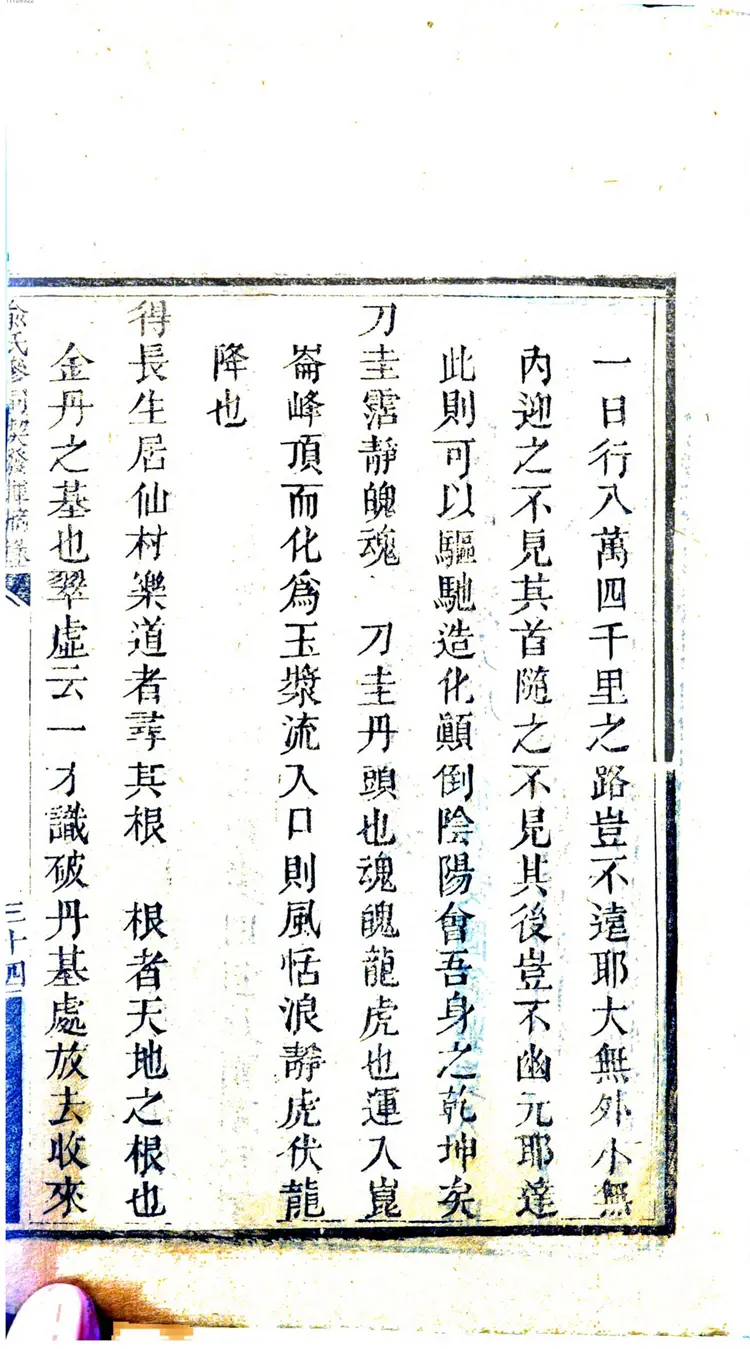 一日行八萬四千里之路豈不遠耶大無外小無
內迎之不見其首隨之不見其後豈不幽元耶達
此則可以驅馳造化顚倒陰陽會吾身之乾坤矣
刀圭霑靜魄魂 刀圭丹頭也魂魄龍虎也運入崑
崙峰頂而化爲玉漿流入口則風恬浪靜虎伏龍
降也
得長生居仙村樂道者尋其根 根者天地之根也
金丹之基也翠虛云一才識破丹基處放去收來
俞氏參同契發揮摘錄
三十四